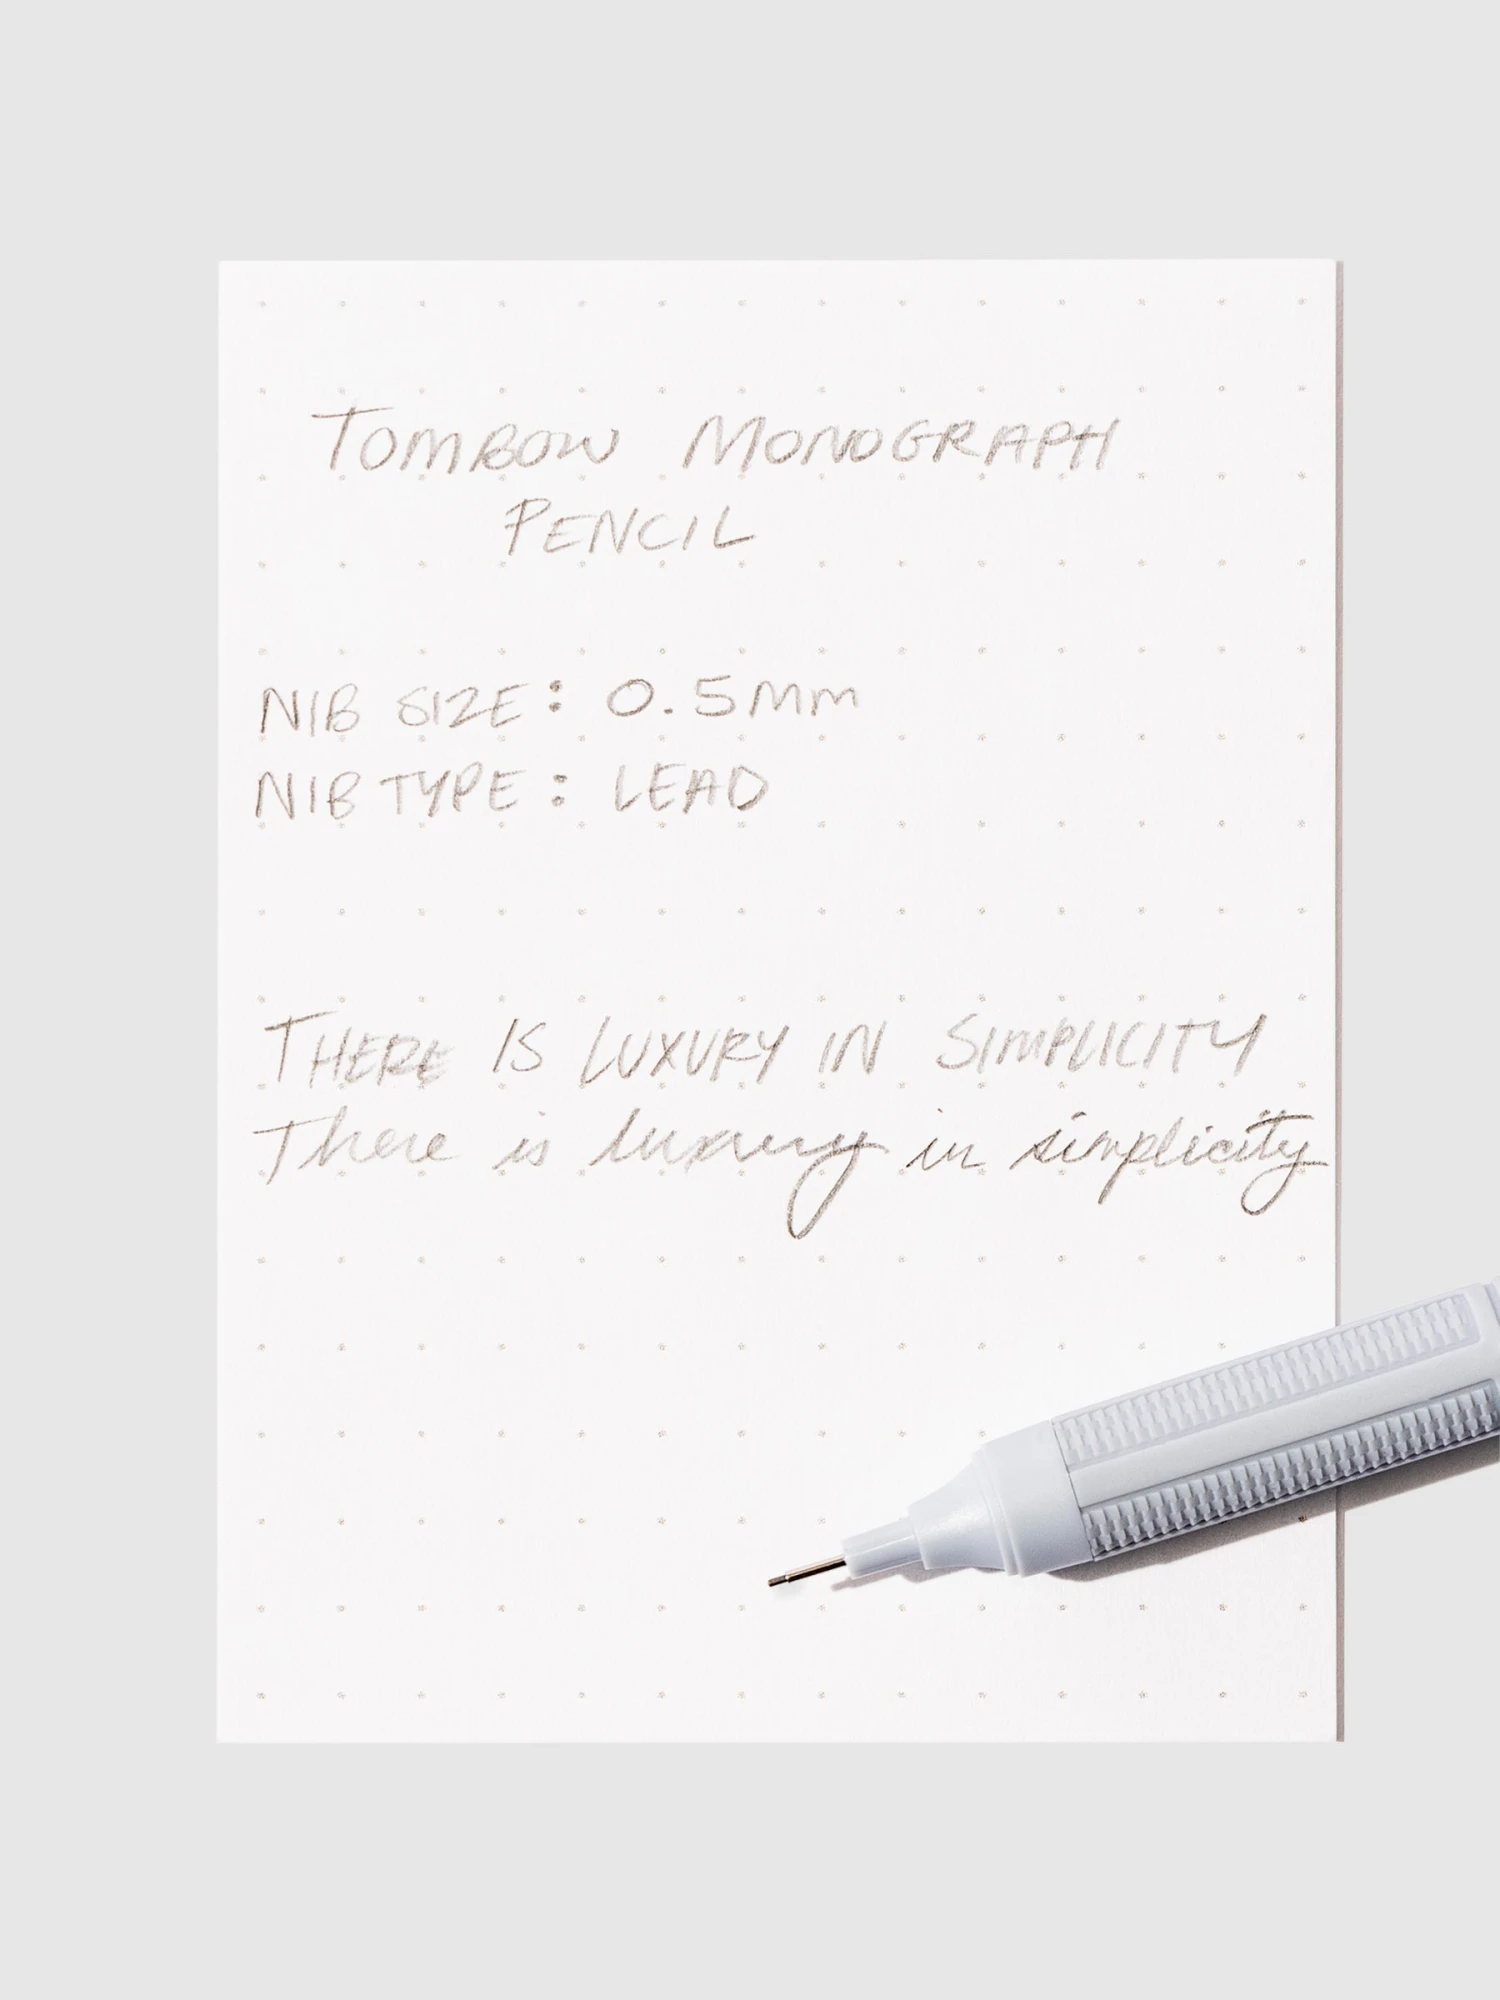 TOMBOW MONOGRAPH
PENCIL
NIB SIZE: 0.5mm
NIB TYPE: LEAD
THERE IS LUXURY IN SIMPLICITY
There is luxury in simplicity